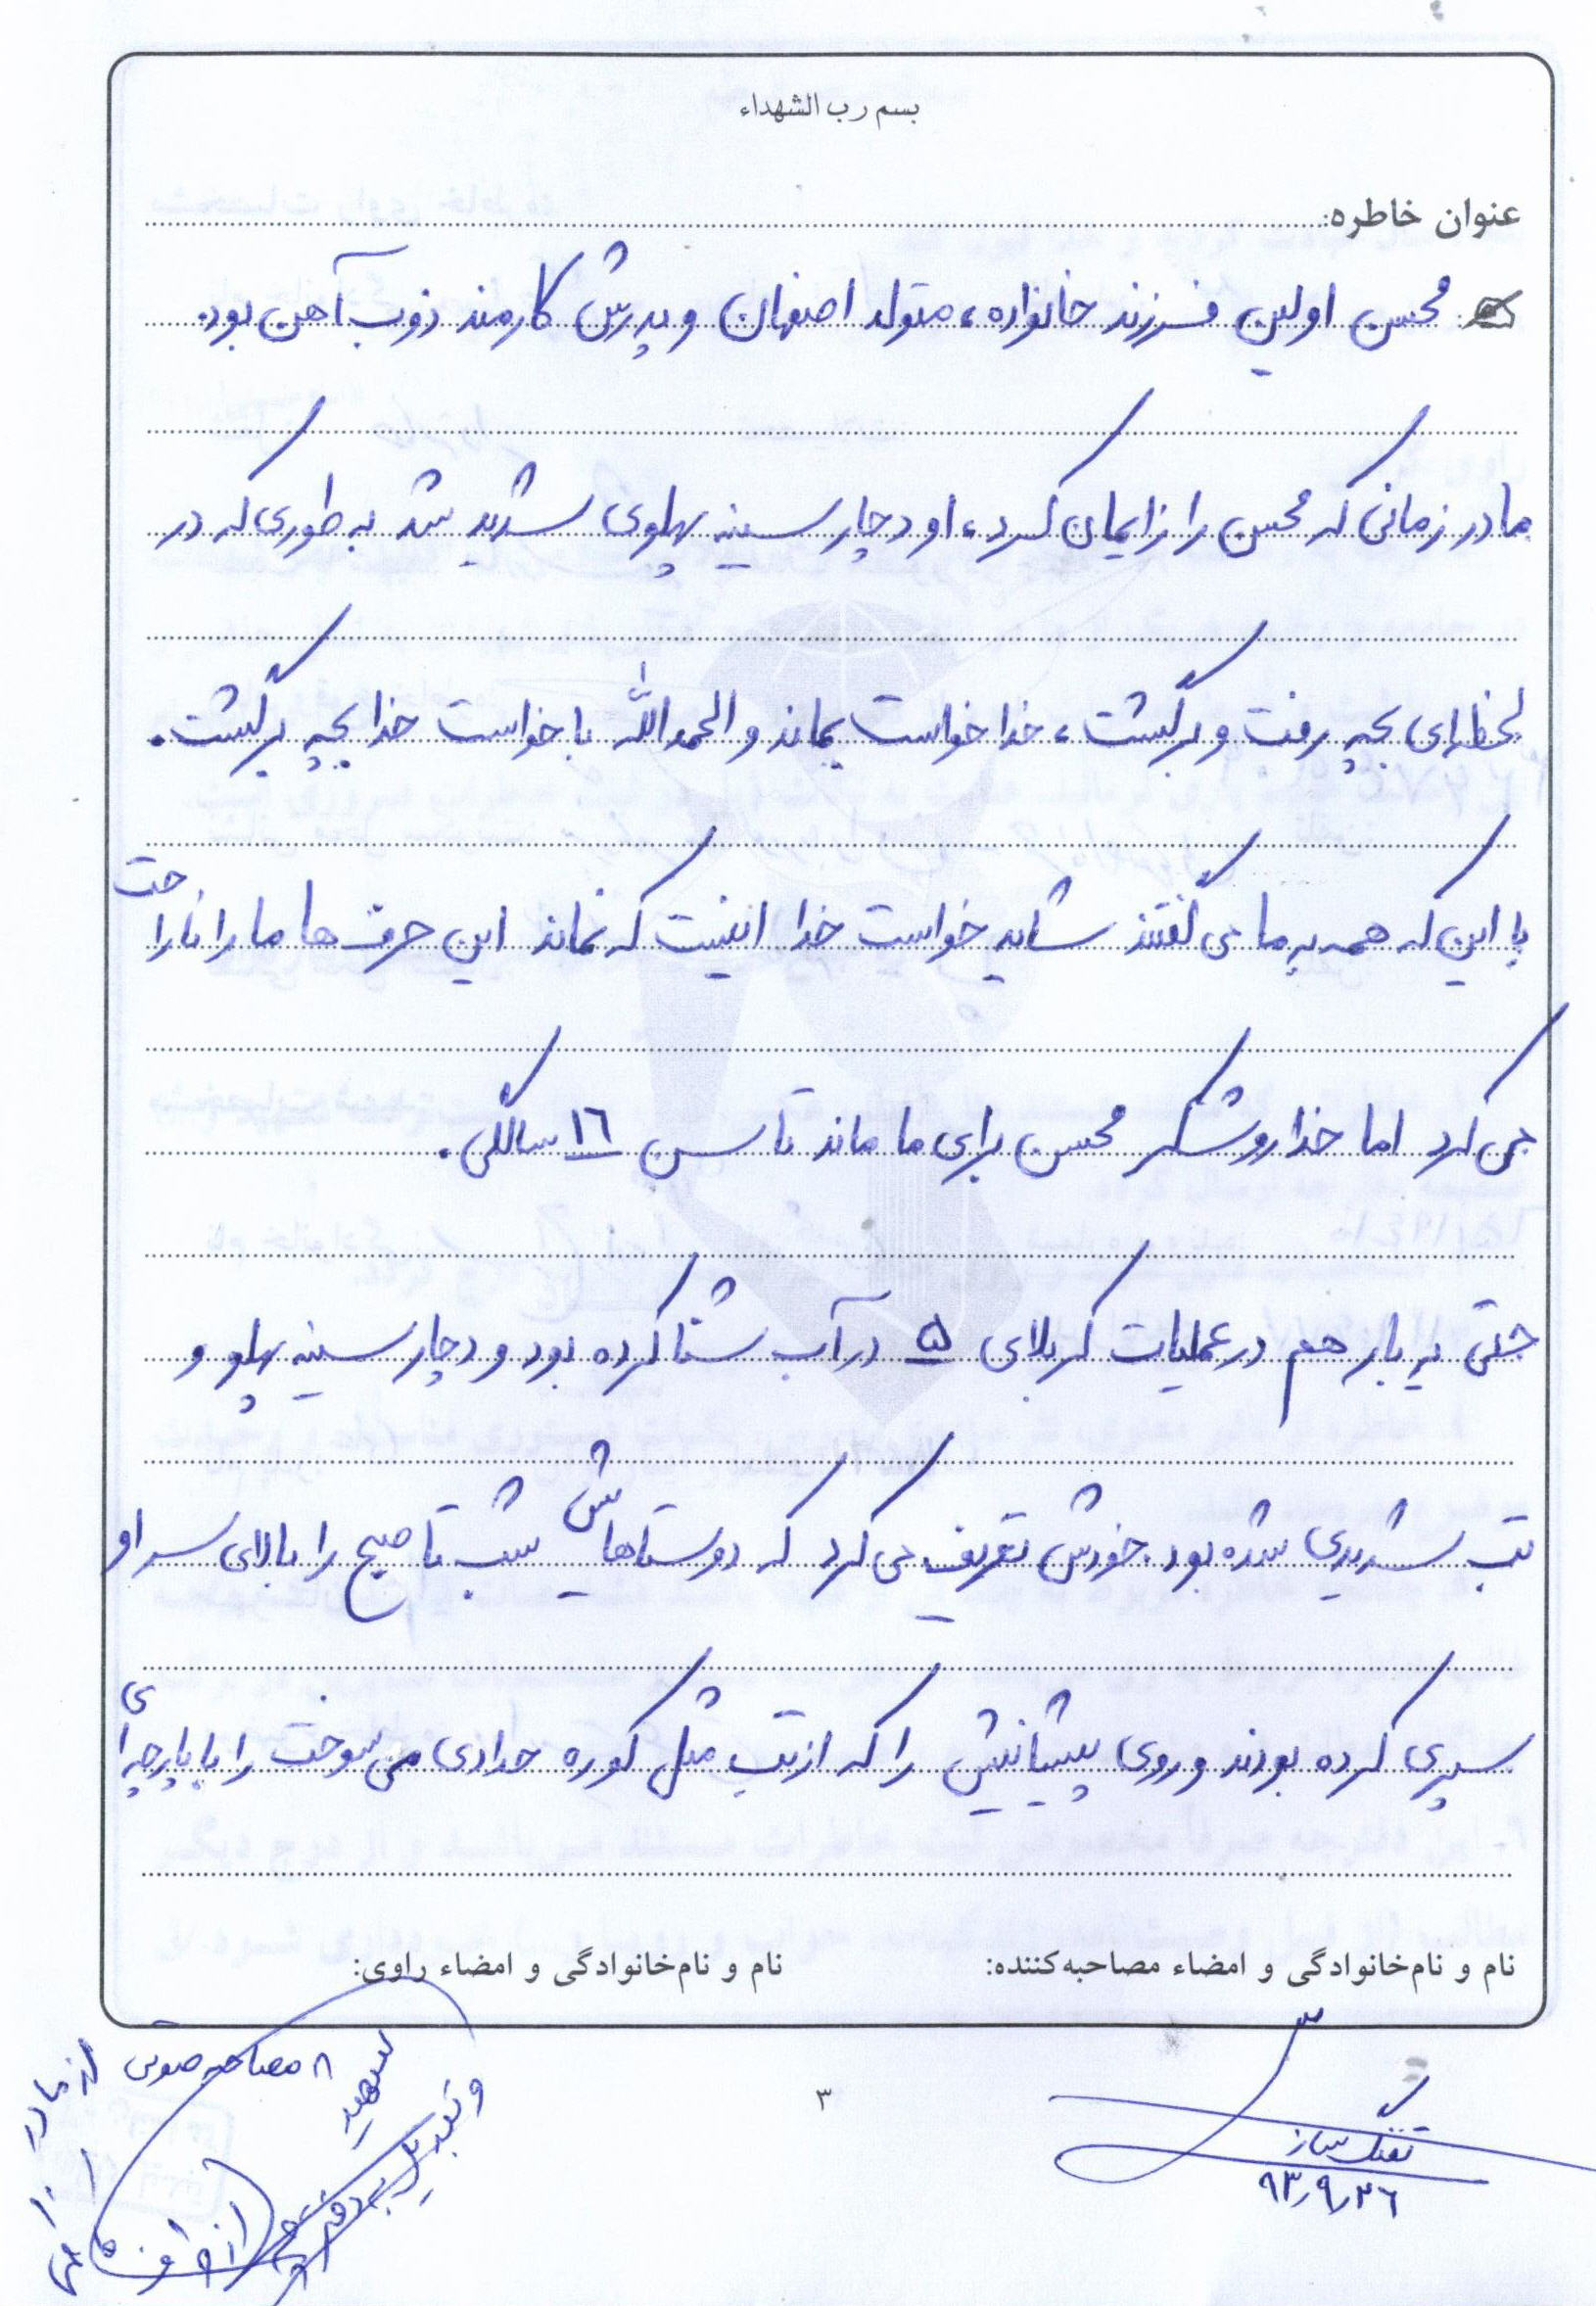 بسم رب الشهداء
عنوان خاطره:
محسن اولین فرزند خانواده، متولد اصفهان و پدرش کارمند ذوب آهن بود.
مادر زمانی که محسن را زایمان کرد، او دچار سینه پهلوی شدید شد به طوری که در
لحظه‌ای بچه رفت و برگشت، خدا خواست بماند و الحمدالله با خواست خدا بچه برگشت.
با این که همه به ما می گفتند شاید خواست خدا اینست که نماند این حرف ها ما را ناراحت
می کرد اما خدا رو شکر محسن برای ما ماند تا سن ۱۶ سالگی.
حتی یه بار هم در عملیات کربلای ۵ در آب شنا کرده بود و دچار سینه پهلو و
تب شدیدی شده بود. خودش تعریف می کرد که دوستاهاش شب تا صبح را بالای سر او
سپری کرده بودند و روی پیشانیش را که از تب مثل کوره حدادی می سوخت را با پارچه ای
نام و نام‌خانوادگی و امضاء مصاحبه‌کننده:
نام و نام‌خانوادگی و امضاء راوی:
مصاحبه صوتی از مادر
شهید
و تبدیل به
۳
تفنگ ساز
۹۳٫۹٫۲۶